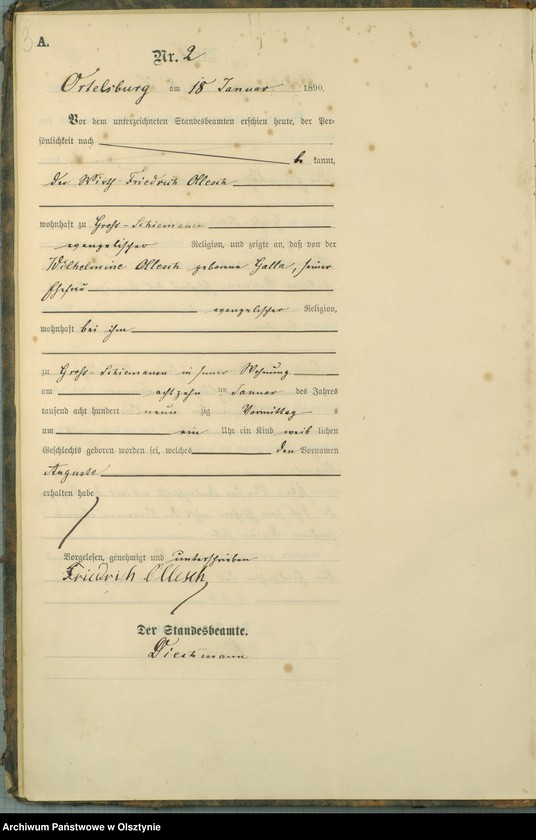 3
A.
Nr. 2
Ortelsburg am 18 Januar 1890.
Vor dem unterzeichneten Standesbeamten erschien heute, der Per-
sönlichkeit nach
be kannt,
der Wirth Friedrich Ollesch
wohnhaft zu Groß-Schiemanen
evangelischer Religion, und zeigte an, daß von der
Wilhelmine Ollesch geborene Galla, seiner
Ehefrau
evangelischer Religion,
wohnhaft bei ihm
zu Groß-Schiemanen in seiner Wohnung
am achtzehn ten Januar des Jahres
tausend acht hundert neun zig Vormittag s
um ein Uhr ein Kind weib lichen
Geschlechts geboren worden sei, welches den Vornamen
Auguste
erhalten habe
Vorgelesen, genehmigt und unterschrieben
Friedrich Ollesch
Der Standesbeamte.
Archiwum Państwowe w Olsztynie